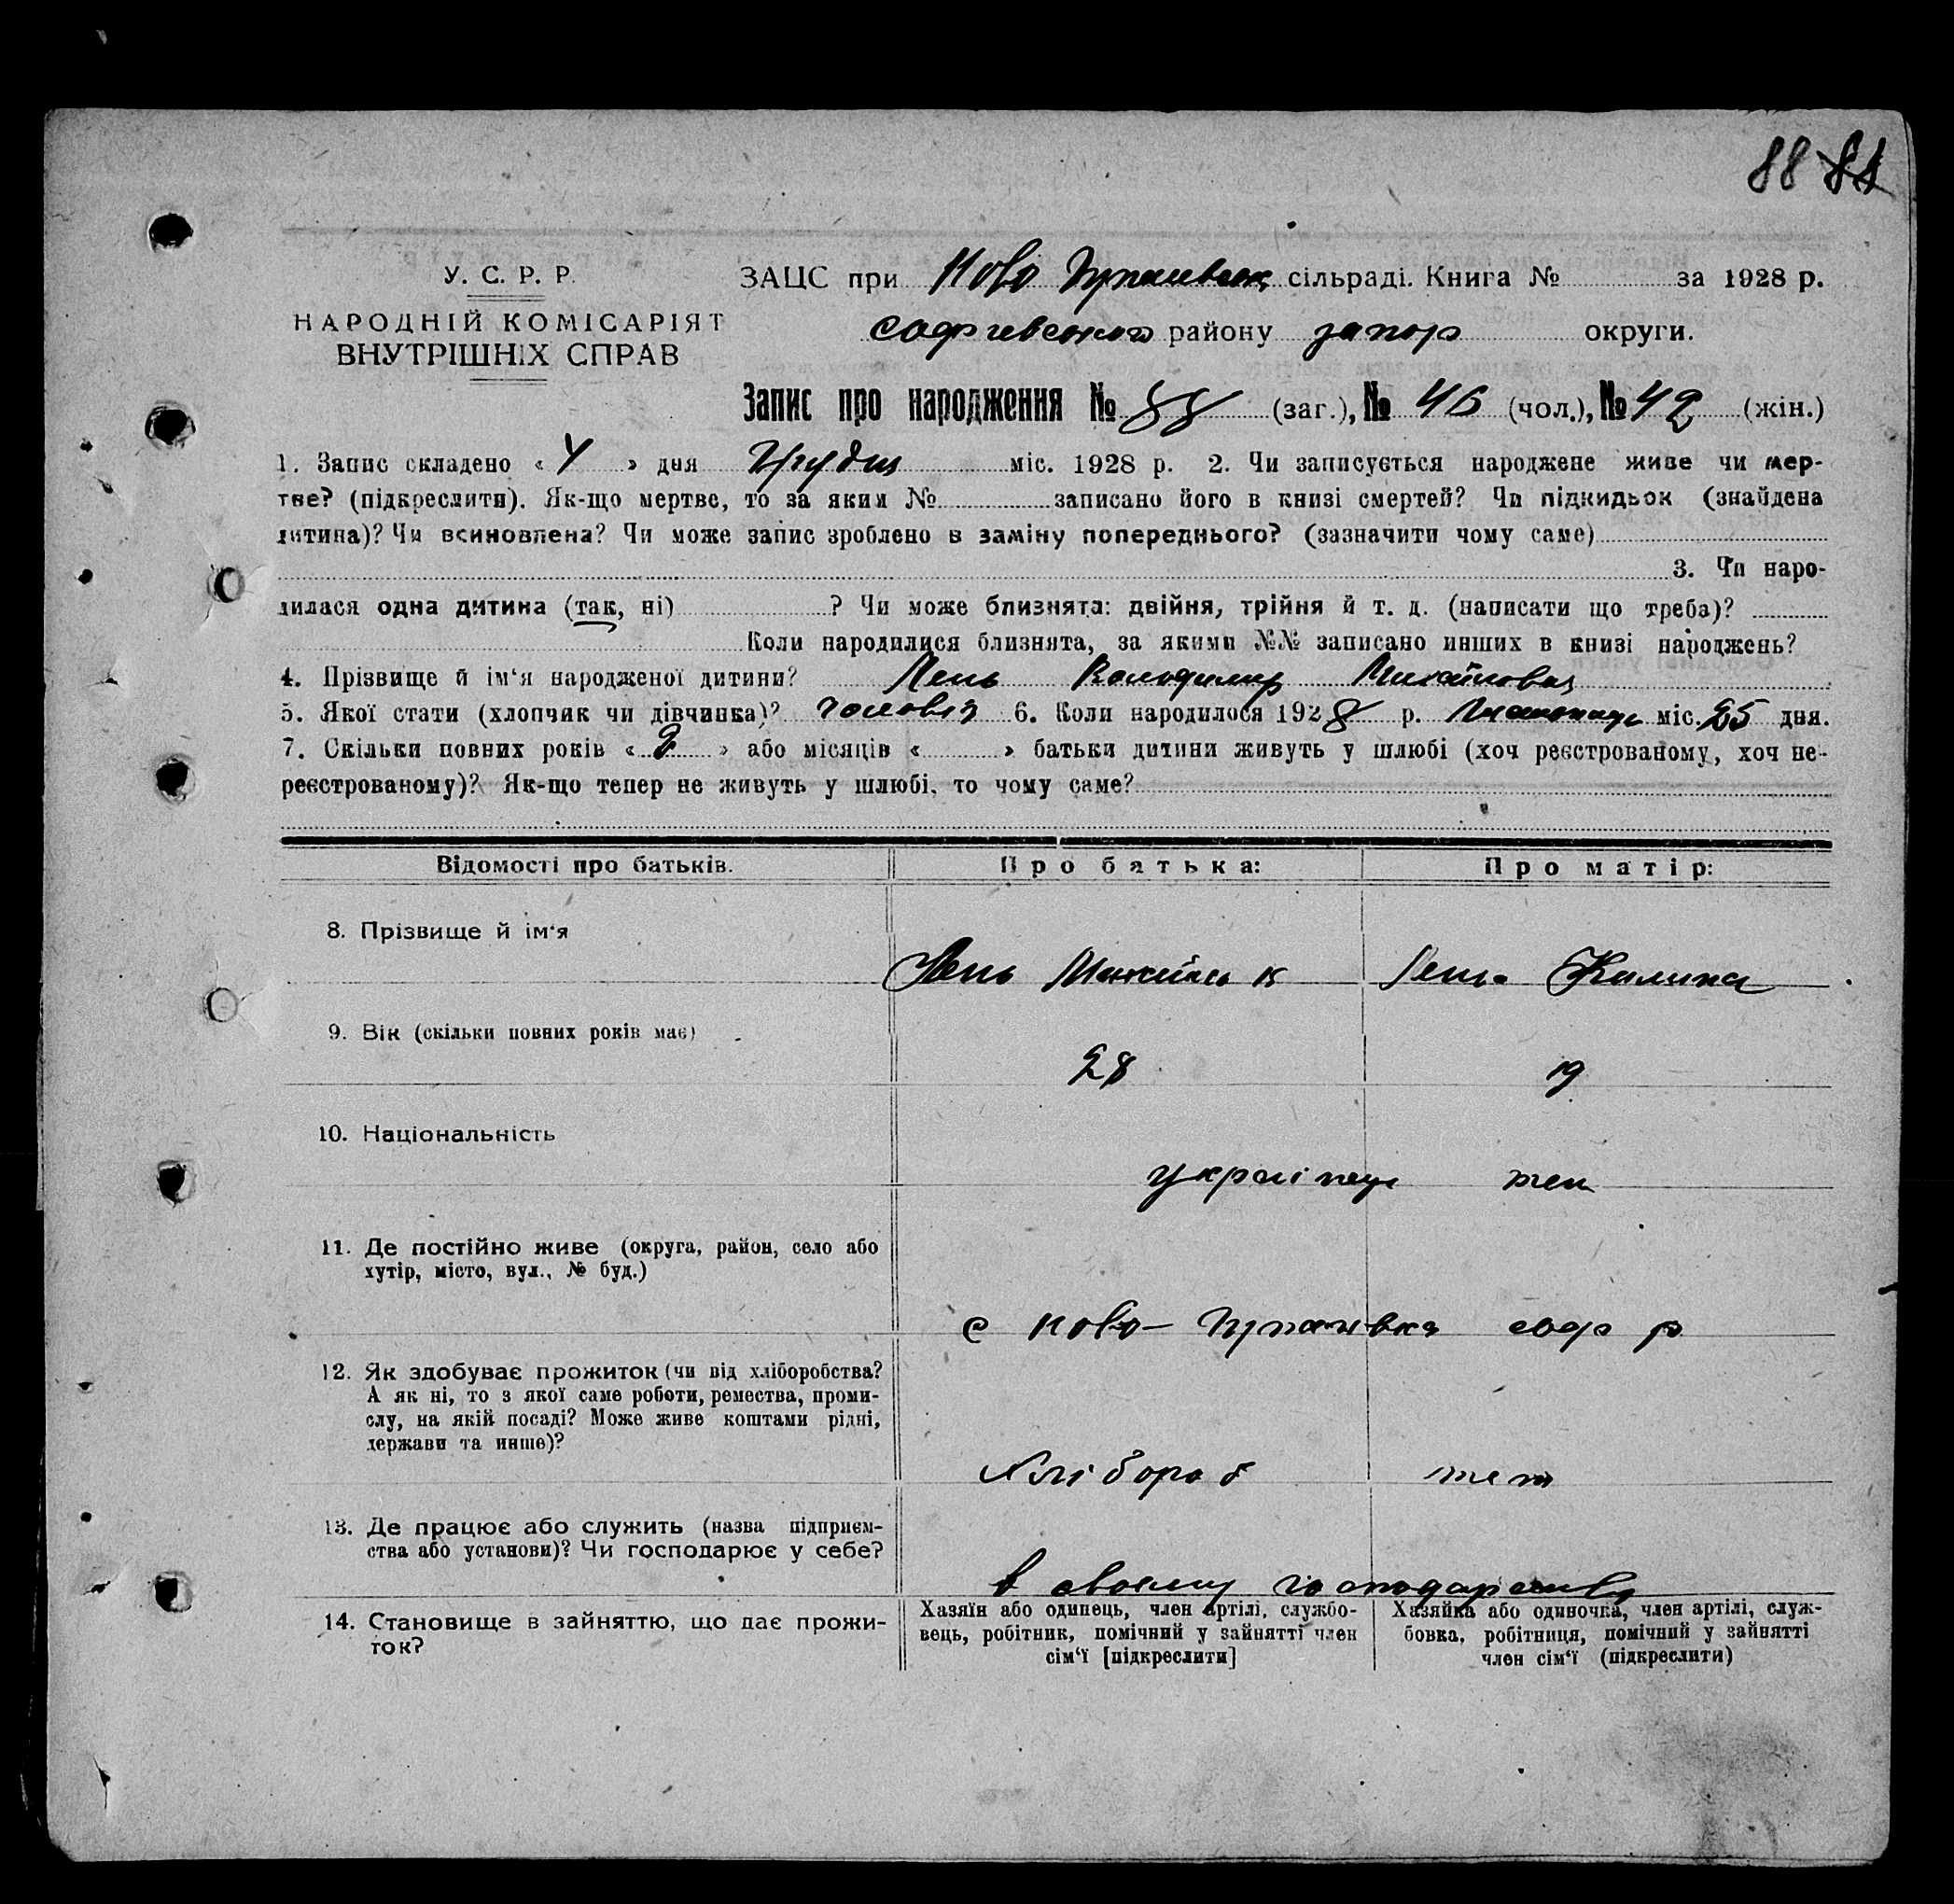 88 81
У. С. Р. Р.
НАРОДНІЙ КОМІСАРІЯТ
ВНУТРІШНІХ СПРАВ
ЗАЦС при Ново сільраді. Книга № за 1928 р.
району запор округи.
Запис про народження № 88 (заг.), № 46 (чол.), № 42 (жін.)
1. Запис складено « 4 » дня Грудня міс. 1928 р. 2. Чи записується народжене живе чи мер-
тве? (підкреслити). Як-що мертве, то за яким № записано його в книзі смертей? Чи підкидьок (знайдена
дитина)? Чи всиновлена? Чи може запис зроблено в заміну попереднього? (зазначити чому саме)
3. Чи наро-
дилася одна дитина (так, ні) ? Чи може близнята: двійня, трійня й т. д. (написати що треба)?
Коли народилися близнята, за якими №№ записано инших в книзі народжень?
4. Прізвище й ім'я народженої дитини? Лень Володимир
5. Якої стати (хлопчик чи дівчинка)? чоловіч 6. Коли народилося 1928 р. Листопад міс. 25 дня.
7. Скільки повних років « 2 » або місяців « » батьки дитини живуть у шлюбі (хоч реєстрованому, хоч не-
реєстрованому)? Як-що тепер не живуть у шлюбі, то чому саме?
Відомості про батьків. Про батька: Про матір:
8. Прізвище й ім'я
Лень Михайло к Лень Калина
9. Вік (скільки повних років має)
28 19
10. Національність
українец теж
11. Де постійно живе (округа, район, село або
хутір, місто, вул., № буд.)
с Ново- соф р
12. Як здобуває прожиток (чи від хліборобства?
А як ні, то з якої саме роботи, ремества, проми-
слу, на якій посаді? Може живе коштами рідні,
держави та инше)?
Хлібороб теж
13. Де працює або служить (назва підприєм-
ства або установи)? Чи господарює у себе?
в своєму господарстві
14. Становище в зайняттю, що дає прожи-
ток?
Хазяїн або одинець, член артілі, службо-
вець, робітник, помічний у зайнятті член
сім'ї [підкреслити]
Хазяйка або одиночка, член артілі, служ-
бовка, робітниця, помічний у зайнятті
член сім'ї (підкреслити)